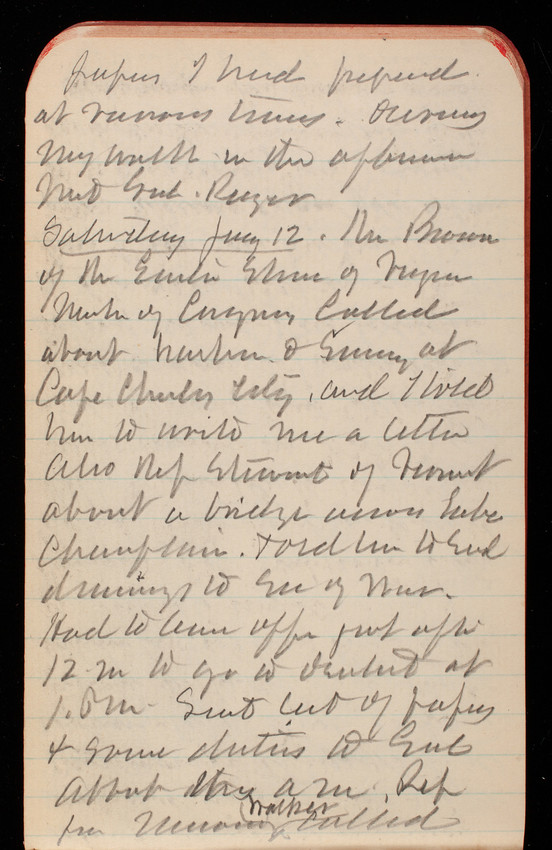 papers I had prepared
at various times. During
my walk in the afternoon
Met Genl. Ruger
Saturday Jany 12. Mr Brown
of the Eastern Shore of
Member of Congress Called
about harbor & Survey at
Cape Charles City, and I told
him to write me a letter
Also Rep Stewart of Vermont
about a bridge across Lake
Champlain. Told him to Send
drawings to Sec of War.
Had to leave office just after
12 m to go to dentist at
1. P.m. Sent list of papers
& some duties to Genl
Abbot this a.m. Rep
from Walker Called